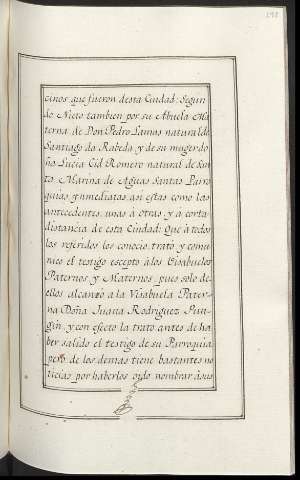 cinos que fueron desta Ciudad: Segun
do Nieto tambien por su Abuela Ma
terna de Don Pedro Lamas natural de
Santiago da Rabeda y de su muger do
ña Lucia Cid Romero natural de San
ta Marina de Aguas Santas Parro
quias ynmediatas asi estas como las
antecedentes unas a otras y a corta
distancia de esta Ciudad: Que à todos
los referidos los conocio, trato y comu
nico el testigo escepto à los Visabuelos
Paternos y Maternos, pues solo de
ellos alcanzo a la Visabuela Pater-
na Doña Juana Rodriguez San-
gin y con efecto la trato antes de ha
ber salido el testigo de su Parroquia
pero de los demas tiene bastantes no
ticias por haberlos oido nombrar à sus